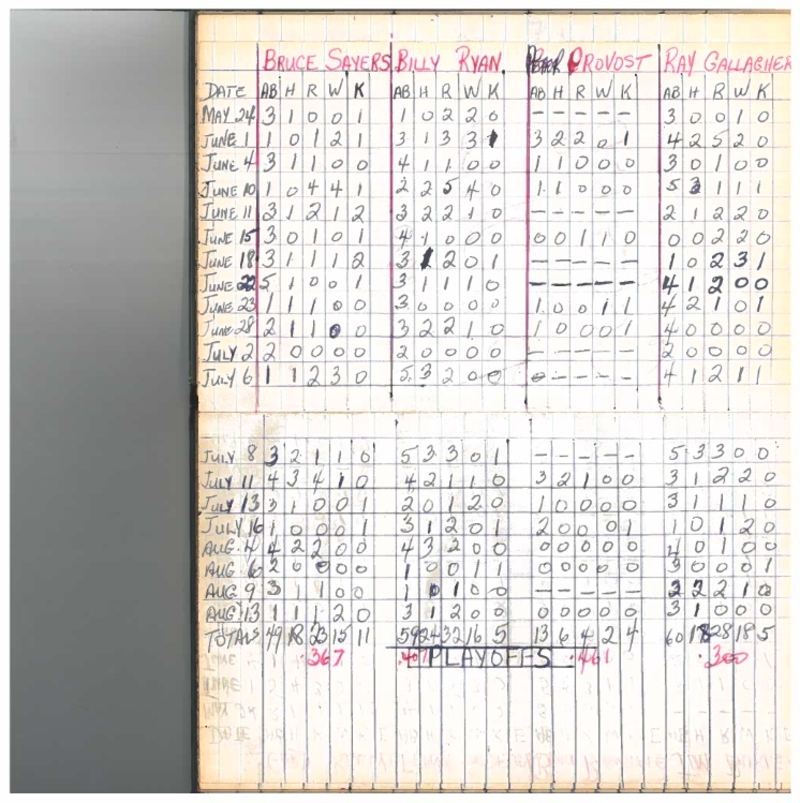 BRUCE SAYERS BILLY RYAN PETER PROVOST RAY GALLAGHER
DATE AB H R W K AB H R W K AB H R W K AB H R W K
MAY 24 3 1 0 0 1 1 0 2 2 0 - - - - - 3 0 0 1 0
JUNE 1 1 0 1 2 1 3 1 3 3 1 3 2 2 0 1 4 2 5 2 0
JUNE 4 3 1 1 0 0 4 1 1 0 0 1 1 0 0 0 3 0 1 0 0
JUNE 10 1 0 4 4 1 2 2 5 4 0 1 1 0 0 0 5 3 1 1 1
JUNE 11 3 1 2 1 2 3 2 2 1 0 - - - - - 2 1 2 2 0
JUNE 15 3 0 1 0 1 4 1 0 0 0 0 0 1 1 0 0 0 2 2 0
JUNE 18 3 1 1 1 2 3 1 2 0 1 - - - - - 1 0 2 3 1
JUNE 22 5 1 0 0 1 3 1 1 1 0 - - - - - 4 1 2 0 0
JUNE 23 1 1 1 0 0 3 0 0 0 0 1 0 0 1 1 4 2 1 0 1
JUNE 28 2 1 1 0 0 3 2 2 1 0 1 0 0 0 1 4 0 0 0 0
JULY 2 2 0 0 0 0 2 0 0 0 0 - - - - - 2 0 0 0 0
JULY 6 1 1 2 3 0 5 3 2 0 0 - - - - 4 1 2 1 1
JULY 8 3 2 1 1 0 5 3 3 0 1 - - - - - 5 3 3 0 0
JULY 11 4 3 4 1 0 4 2 1 1 0 3 2 1 0 0 3 1 2 2 0
JULY 13 3 1 0 0 1 2 0 1 2 0 1 0 0 0 0 3 1 1 1 0
JULY 16 1 0 0 0 1 3 1 2 0 1 2 0 0 0 1 1 0 1 2 0
AUG. 4 4 2 2 0 0 4 3 2 0 0 0 0 0 0 0 4 0 1 0 0
AUG. 6 2 0 0 0 0 1 0 0 1 1 0 0 0 0 0 3 0 0 0 1
AUG 9 3 1 1 0 0 1 0 1 0 0 - - - - - 2 2 2 1 0
AUG 13 1 1 1 2 0 3 1 2 0 0 0 0 0 0 0 3 1 0 0 0
TOTALS 49 18 23 15 11 59 24 32 16 5 13 6 4 2 4 60 18 28 18 5
.367 .407 PLAYOFFS .461 .300